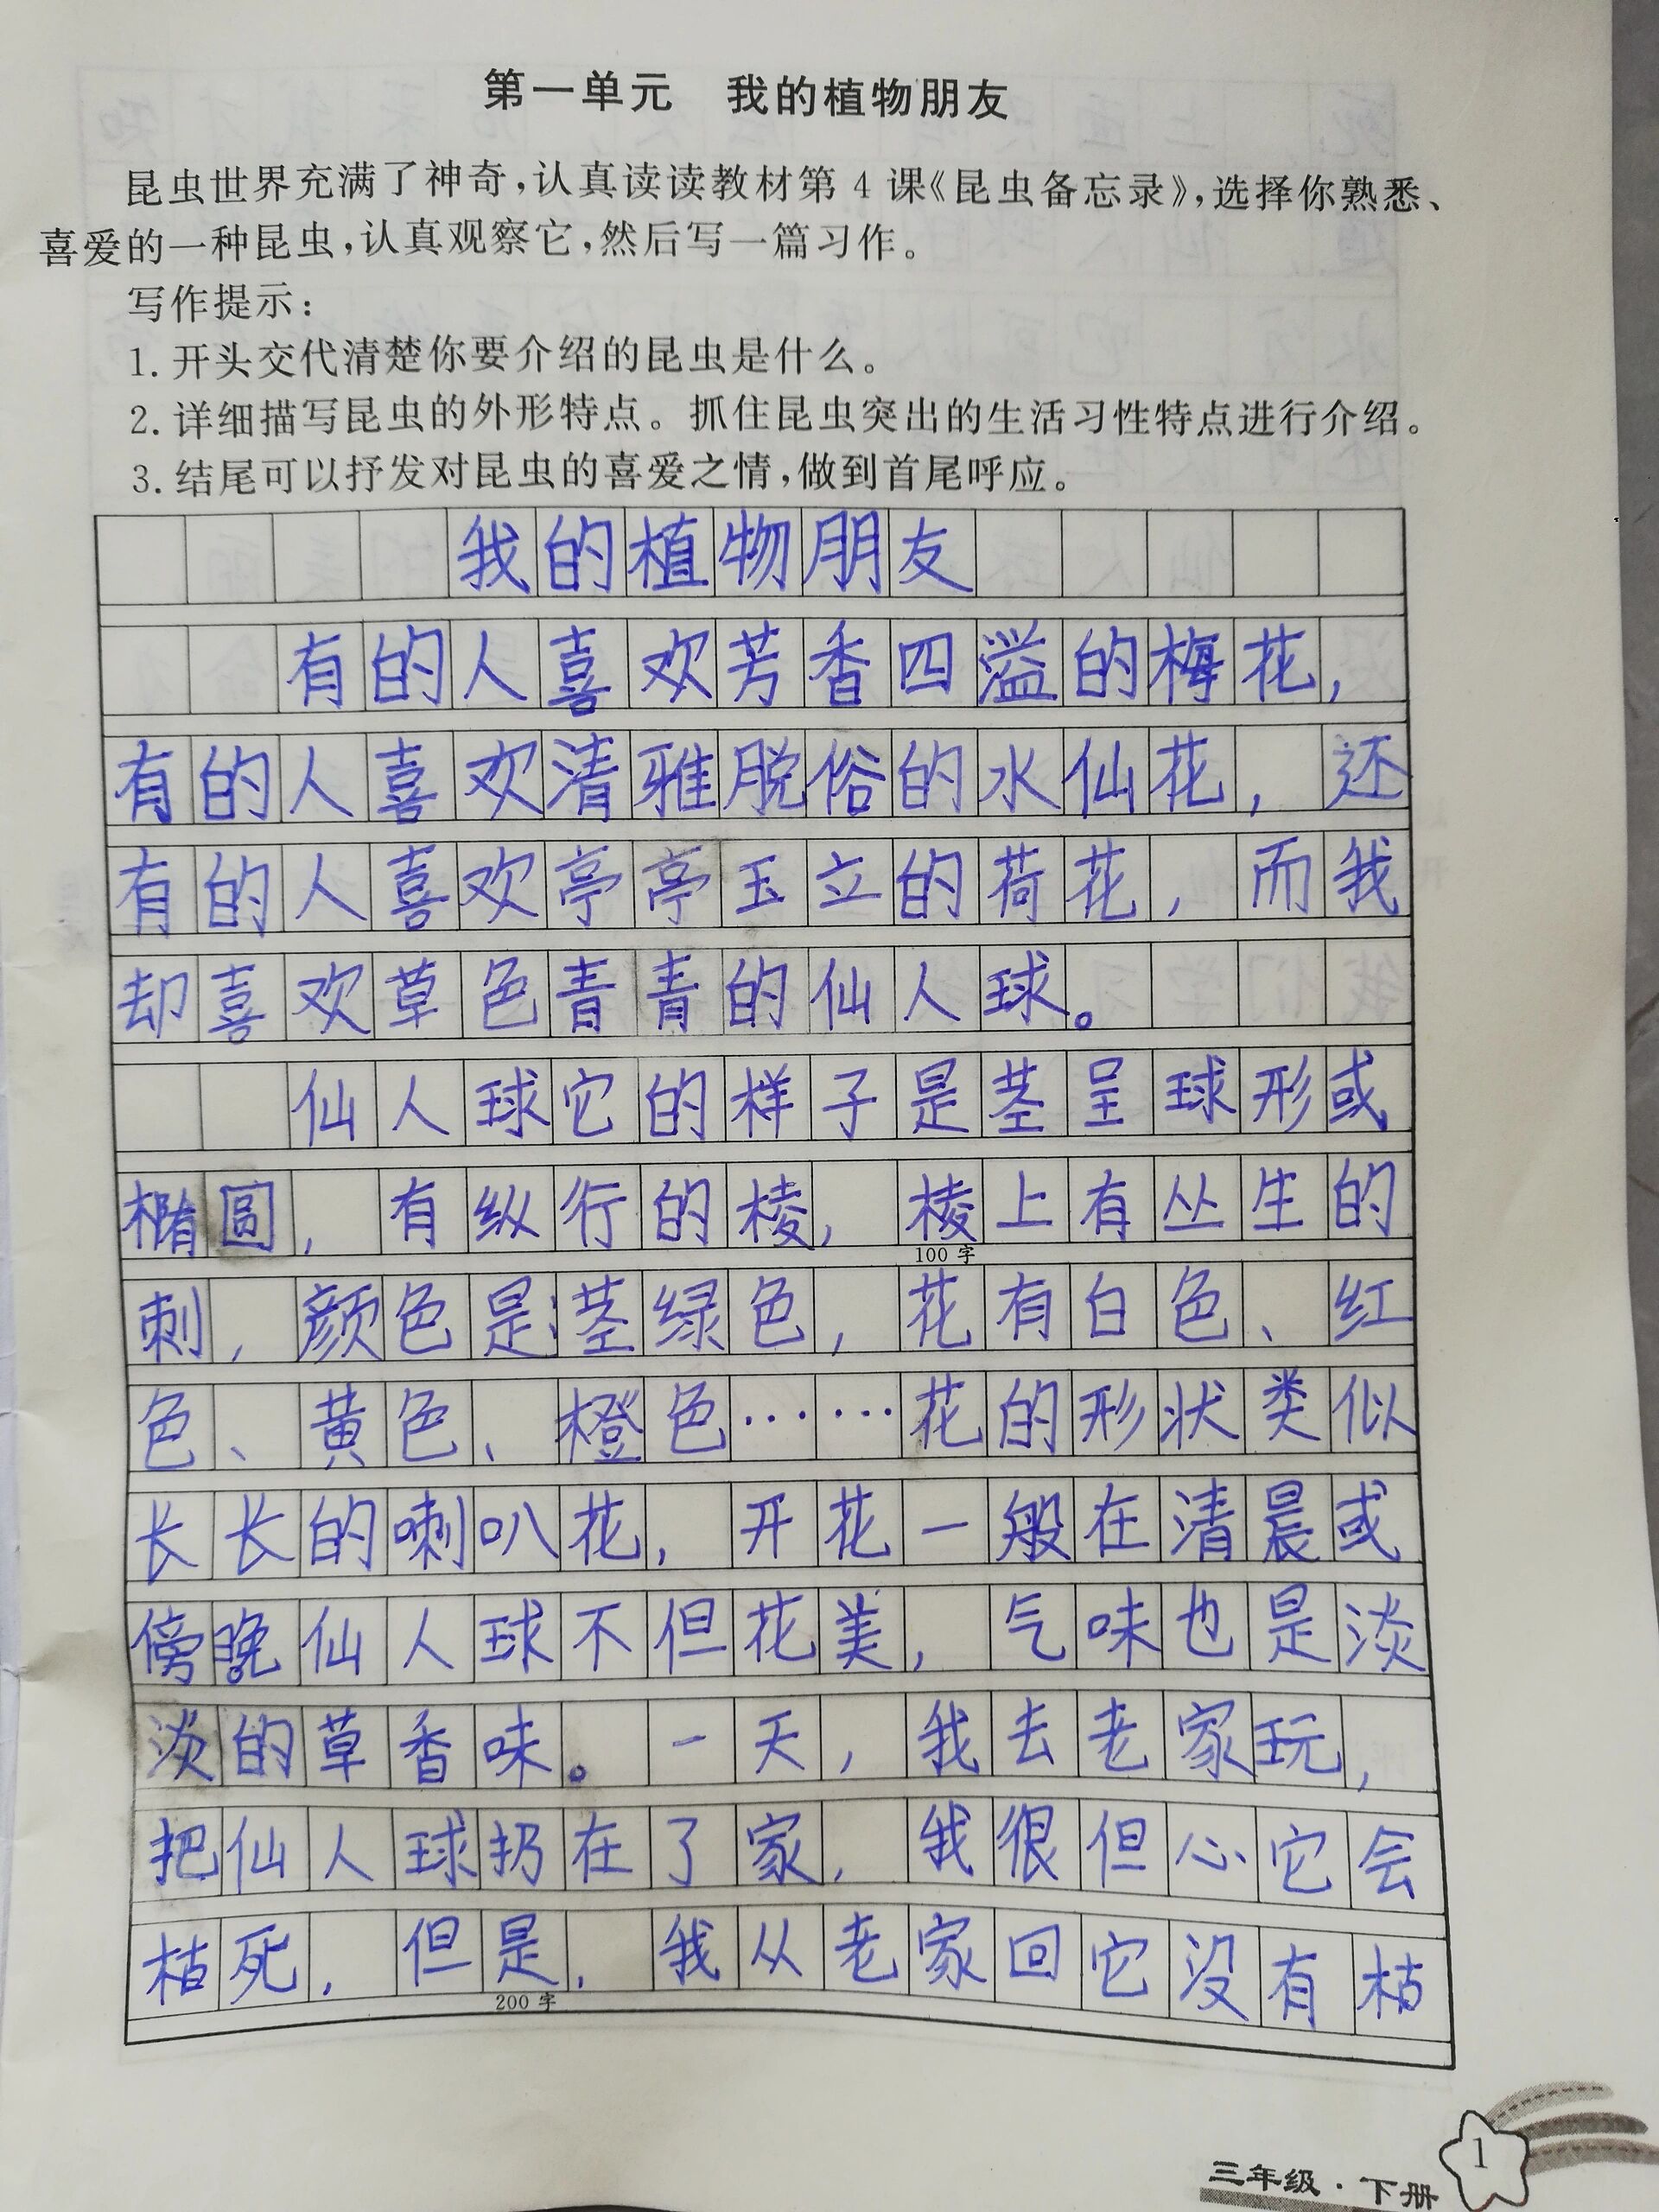 第一单元 我的植物朋友
昆虫世界充满了神奇,认真读读教材第4课《昆虫备忘录》,选择你熟悉、
喜爱的一种昆虫,认真观察它,然后写一篇习作。
写作提示:
1. 开头交代清楚你要介绍的昆虫是什么。
2. 详细描写昆虫的外形特点。抓住昆虫突出的生活习性特点进行介绍。
3. 结尾可以抒发对昆虫的喜爱之情,做到首尾呼应。
我的植物朋友
有的人喜欢芳香四溢的梅花,
有的人喜欢清雅脱俗的水仙花,还
有的人喜欢亭亭玉立的荷花,而我
却喜欢草色青青的仙人球。
仙人球它的样子是茎呈球形或
椭圆,有纵行的棱,棱上有丛生的
100字
刺,颜色是茎绿色,花有白色、红
色、黄色、橙色……花的形状类似
长长的喇叭花,开花一般在清晨或
傍晚仙人球不但花美,气味也是淡
淡的草香味。一天,我去老家玩,
把仙人球扔在了家,我很但心它会
枯死,但是,我从老家回它没有枯
200字
三年级·下册
1